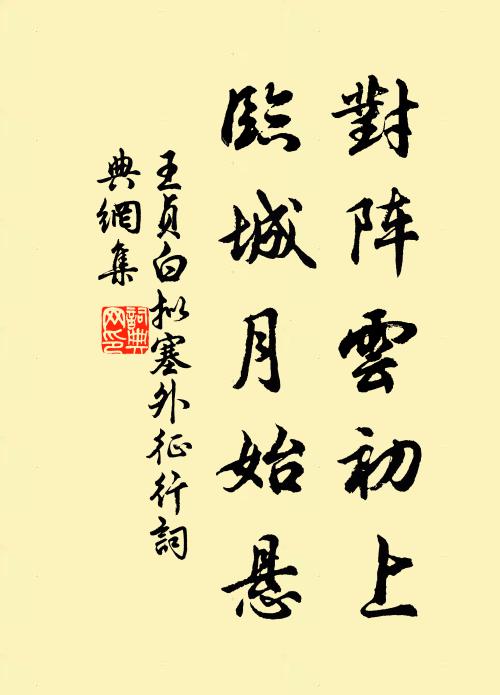 對阵雲初上
臨城月始懸
王貞白拟塞外征行詞
典網集
詞典网印